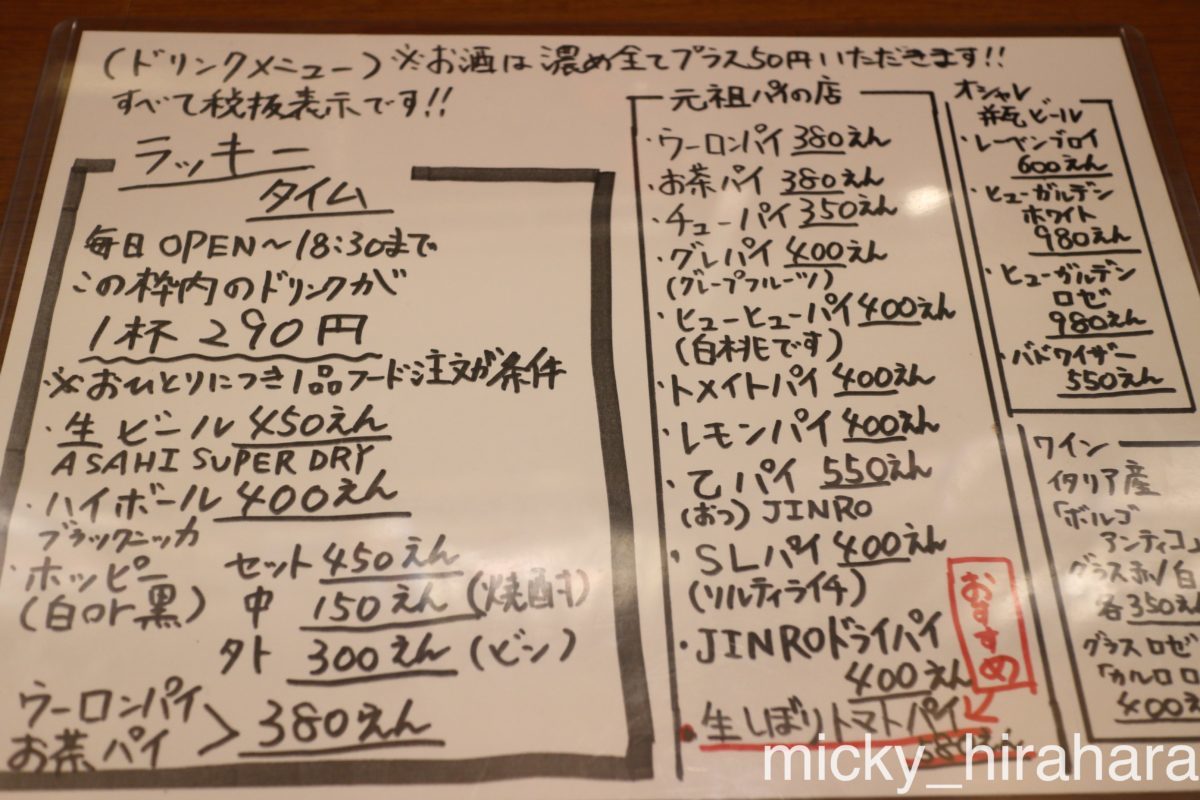 (ドリンクメニュー) ※お酒は濃め全てプラス50円いただきます!!
すべて税抜表示です!!
ラッキー
タイム
毎日 OPEN〜18:30まで
この枠内のドリンクが
1杯 290円
※おひとりにつき1品フード注文が条件
・生ビール 450えん
ASAHI SUPER DRY
・ハイボール 400えん
ブラックニッカ
・ホッピー セット 450えん
(白or黒) 中 150えん (焼酎)
外 300えん (ビン)
ウーロンパイ
お茶パイ > 380えん
元祖パイの店
・ウーロンパイ 380えん
・お茶パイ 380えん
・チューパイ 350えん
・グレパイ 400えん
(グレープフルーツ)
・ヒューヒューパイ 400えん
(白桃です)
・トメイトパイ 400えん
・レモンパイ 400えん
・乙パイ 550えん
(おつ) JINRO
・SLパイ 400えん
(ソルティライチ)
・JINROドライパイ
400えん
おすすめ
・生しぼりトマトパイ
580えん
オシャレ
瓶ビール
・レーベンブロイ
600えん
・ヒューガルデン
ホワイト
980えん
・ヒューガルデン
ロゼ
980えん
・バドワイザー
550えん
ワイン
イタリア産
「ボルゴ
アンティコ」
グラス赤/白
各350え
グラスロゼ
「カルロロ
400え
micky_hirahara